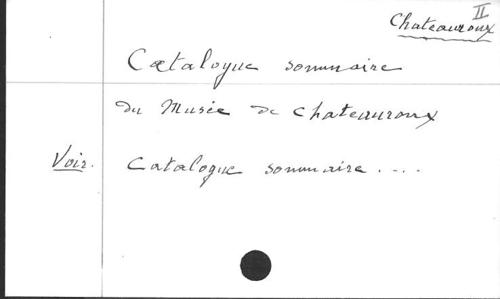 II
Chateauroux
Catalogue sommaire
du Musée de Chateauroux
Voir. Catalogue sommaire....